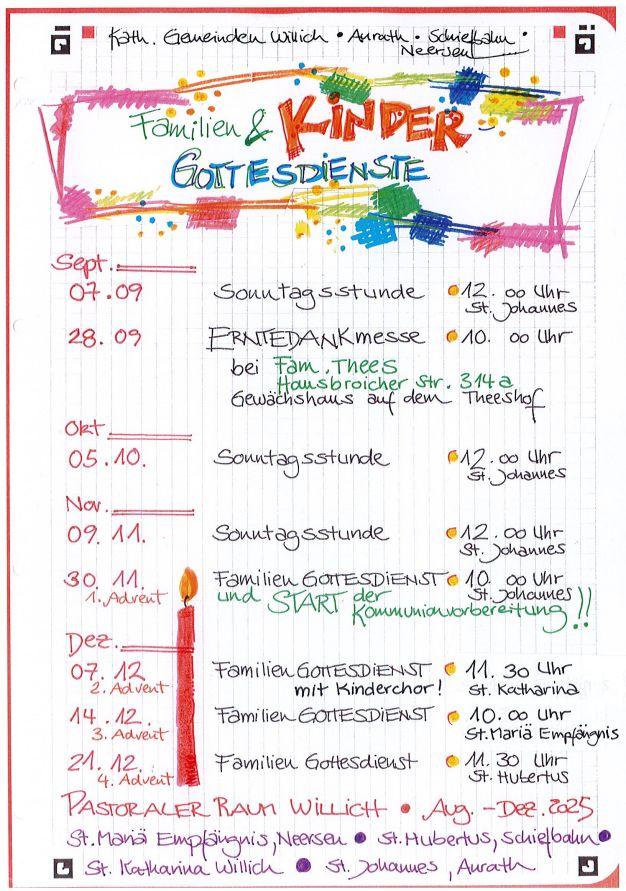 Kath. Gemeinden Willich • Anrath • Schiefbahn •
Neersen
Familien & KINDER
GOTTESDIENSTE
Sept.
07.09 Sonntagsstunde 12.00 Uhr
St. Johannes
28.09 ERNTEDANKmesse 10.00 Uhr
bei Fam. Thees
Hausbroicher Str. 314a
Gewächshaus auf dem Theeshof
Okt
05.10. Sonntagsstunde 12.00 Uhr
St. Johannes
Nov.
09.11. Sonntagsstunde 12.00 Uhr
St. Johannes
30.11. Familien GOTTESDIENST 10.00 Uhr
1. Advent und START der St. Johannes
Kommunionvorbereitung!!
Dez.
07.12 Familien GOTTESDIENST 11.30 Uhr
2. Advent mit Kinderchor! St. Katharina
14.12. Familien GOTTESDIENST 10.00 Uhr
3. Advent St. Mariä Empfängnis
21.12. Familien Gottesdienst 11.30 Uhr
4. Advent St. Hubertus
PASTORALER RAUM WILLICH • Aug. – Dez. 2025
St. Mariä Empfängnis, Neersen • St. Hubertus, Schiefbahn •
St. Katharina Willich • St. Johannes, Anrath